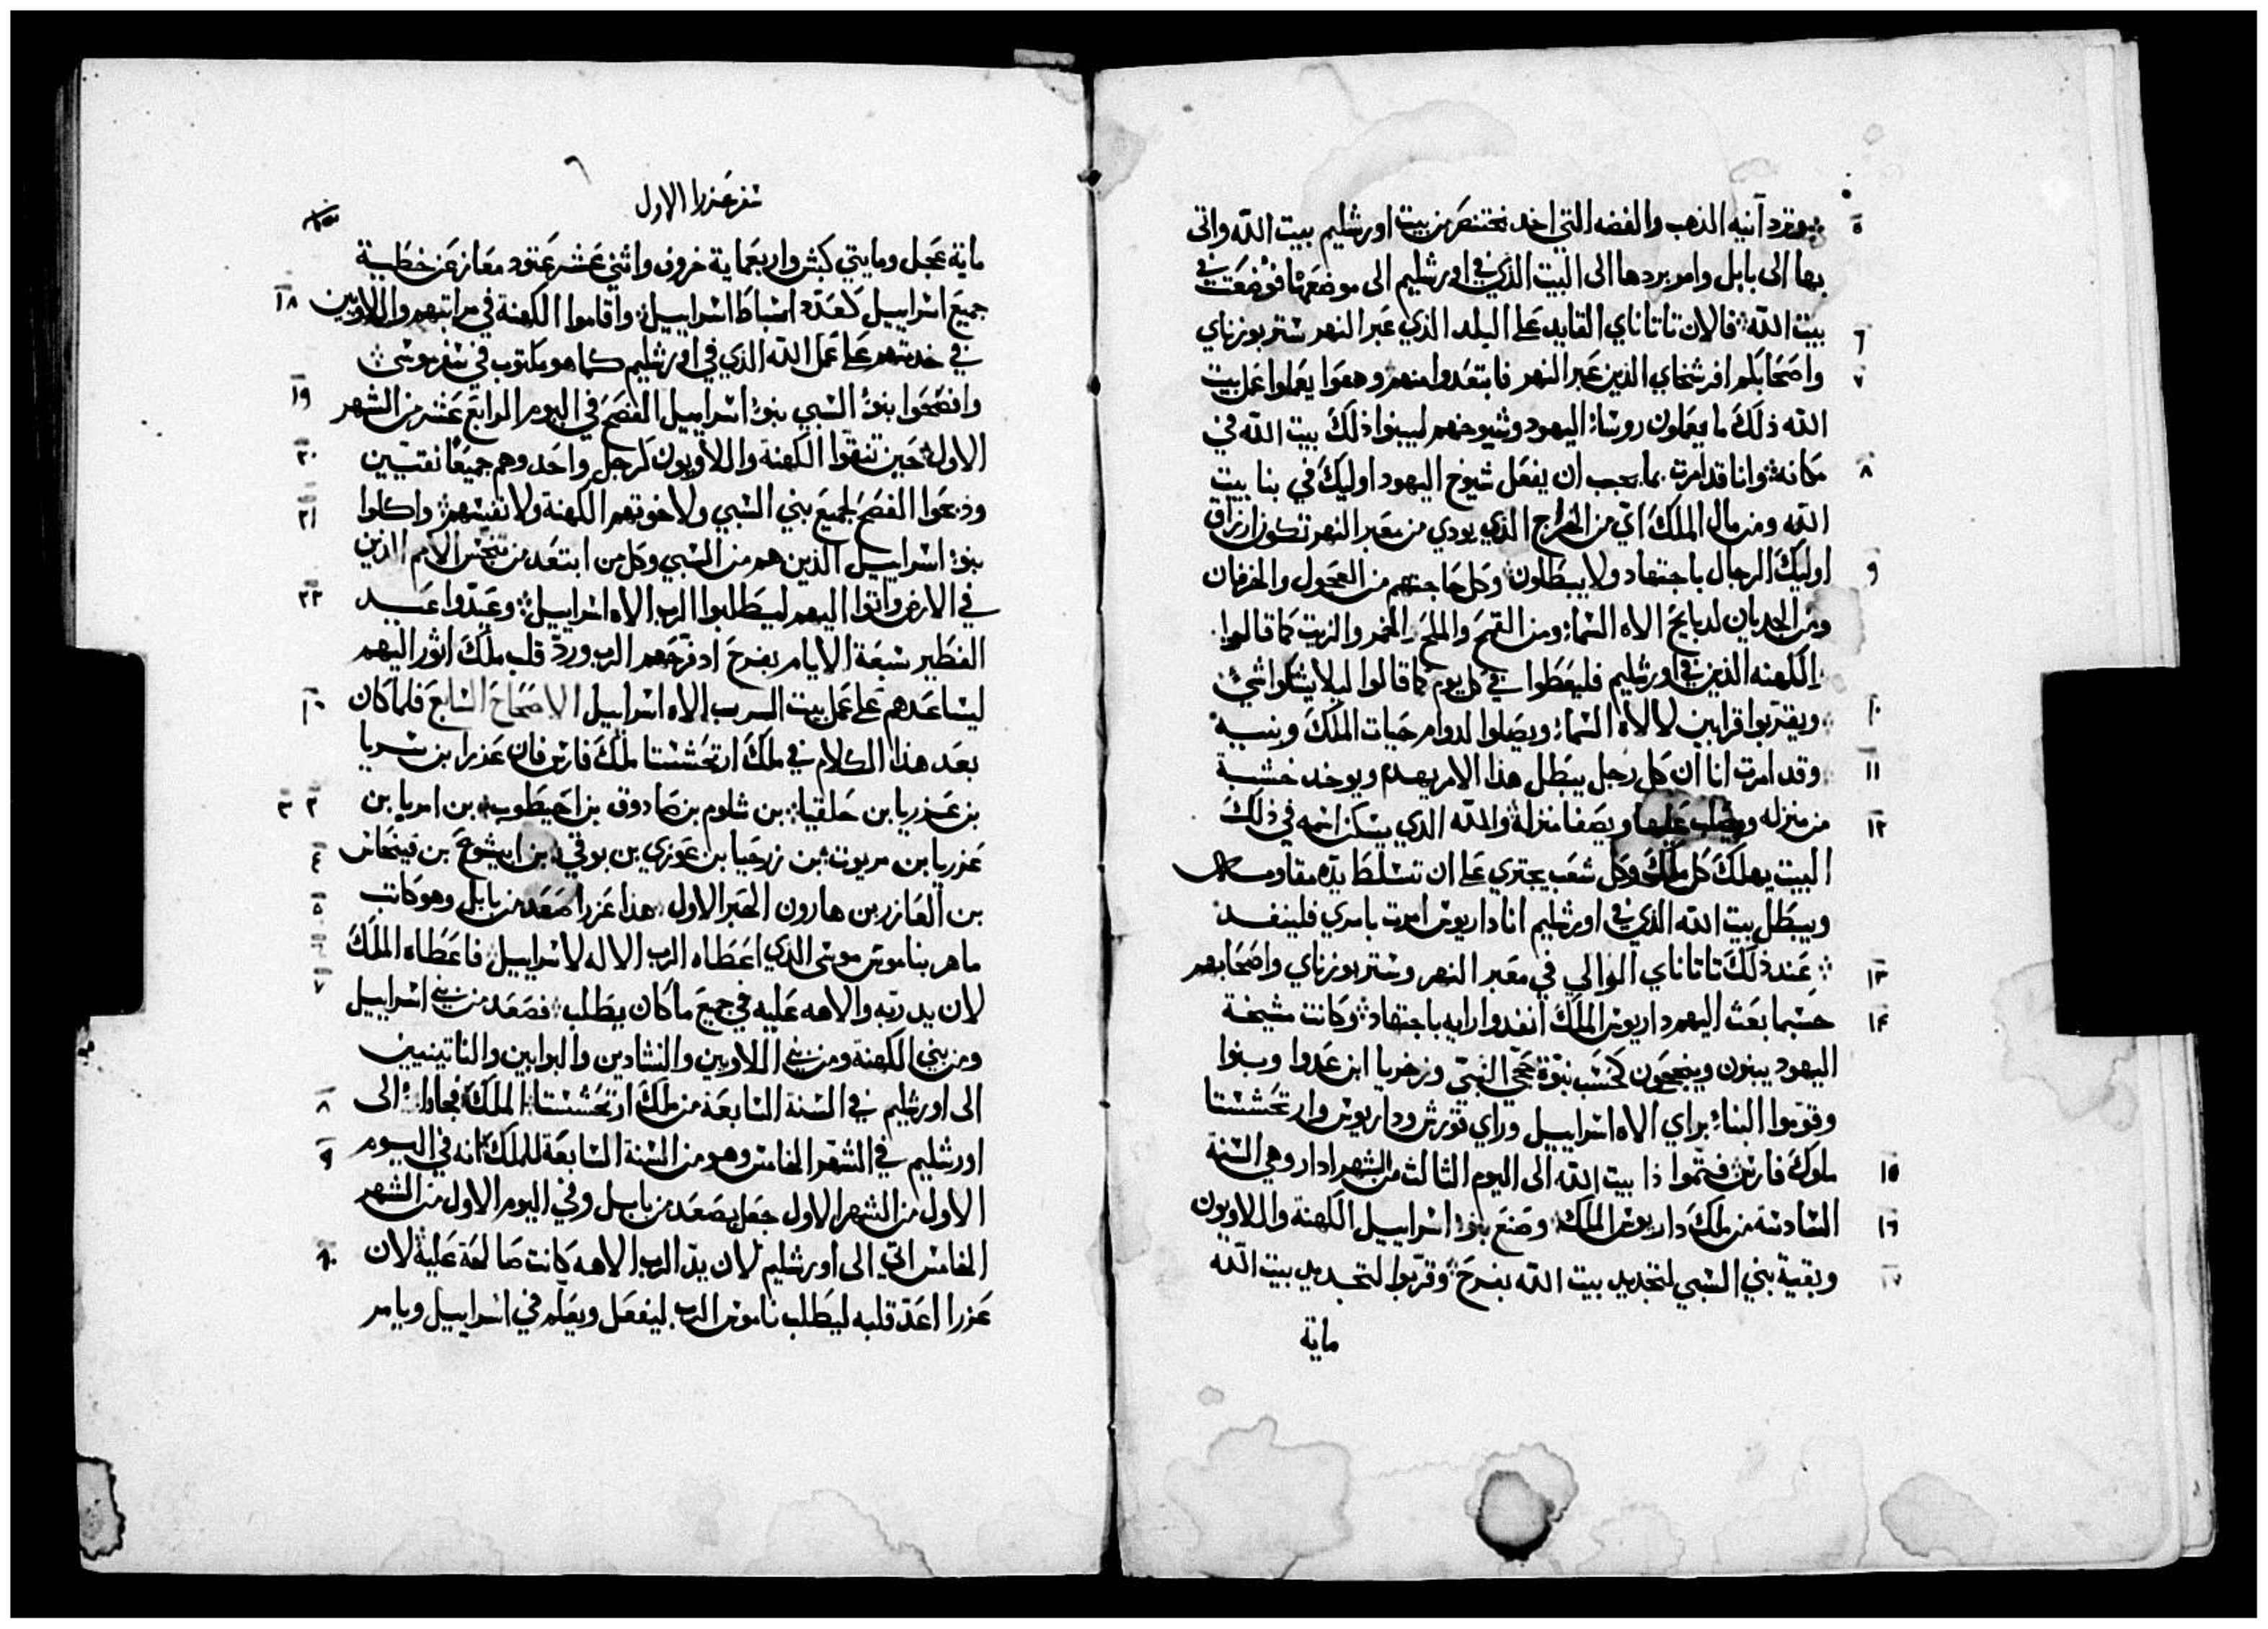 ٥ ويرد آنية الذهب والفضه التي اخد بختنصر من بيت اورشليم بيت الله واتى
بها الى بابل وامر بردها الى البيت الذي في اورشليم الى موضعها فوضعت في
٦ بيت الله فالان تاتاناي القايد على البلد الذي عبر النهر شتر بوزناي
٧ واصحابكم افرسخاي الذين عبر النهر فابتعدوا منهم ودعوا يعملوا عمل بيت
الله ذلك ما يعملون روسا اليهود وشيوخهم ليبنوا ذلك بيت الله في
٨ مكانه وانا قد امرت بما يجب ان يفعل شيوخ اليهود اوليك في بنا بيت
الله ومن مال الملك اي من الخراج الذي يودي من معبر النهر تكون ارزاق
٩ اوليك الرجال باجتهاد ولا يبطلون وكل حاجتهم من العجول والخرفان
ومن الجديان لدبايح الاه السماء ومن القمح والملح والخمر والزيت كما قالوا
الكهنه الذين في اورشليم فليعطوا في كل يوم كما قالوا ليلا يشكوا شي
١٠ ويقربوا قرابين لالاه السماء ويصلوا لدوام حيات الملك وبنيه
١١ وقد امرت انا ان كل رجل يبطل هذا الامر يهدم ويوخد خشبة
١٢ من منزله ويصلب عليها ويصفا منزله والله الذي يسكن اسمه في ذلك
البيت يهلك كل ملك وكل شعب يجتري على ان تسلط يده مقاومـ
ويبطل بيت الله الذي في اورشليم انا داريوس امرت بامري فلينفد
١٣ عند ذلك تاتاناي الوالي في معبر النهر وستر بوزناي واصحابهم
١٤ حسبما بعث اليهم داريوس الملك انفدوا رايه باجتهاد وكانت مشيخة
اليهود يبنون وينجحون كحسب نبوة حجي النبي وزخريا ابن عدوا وبنوا
وقوموا البناء براي الاه اسراييل وراي قورش وداريوس وارتحششتا
١٥ ملوك فارس فتموا ذا بيت الله الى اليوم الثالث من الشهر ادار وهي السنة
١٦ السادسة من ملك داريوس الملك وصنع بنو اسراييل الكهنة واللاويون
١٧ وبقية بني السبي لتجديد بيت الله بفرح وقربوا لتجديد بيت الله
ماية
٦
سفر عزرا الاول
ماية عجل ومايتي كبش واربعماية خروف واثني عشر عتود معاز عن خطية
١٨ جميع اسراييل كعدة اسباط اسراييل واقاموا الكهنة في مراتبهم واللاويين
في خدمتهم على عمل الله الذي في اورشليم كما هو مكتوب في سفر موسى
١٩ وافصحوا بنو السبي بنو اسراييل الفصح في اليوم الرابع عشر من الشهر
٢٠ الاول حين تنقوا الكهنة واللاويون كرجل واحد وهم جميعا نقيين
٢١ ودبحوا الفصح لجميع بني السبي ولاخوتهم الكهنة ولانفسهم واكلوا
بنو اسراييل الذين هم من السبي وكل من ابتعد من تنجس الامم الذين
٢٢ في الارض واتوا اليهم ليطلبوا الرب الاه اسراييل وعيدوا عيد
الفطير سبعة الايام بفرح اد فرحهم الرب ورد قلب ملك اثور اليهم
١ ليساعدهم على عمل بيت الرب الاه اسراييل الاصحاح السابع فلما كان
بعد هذا الكلام في ملك ارتحششتا ملك فارس فان عذرا بن سريا
٢ ٣ بن عذريا بن حلقيا بن شلوم بن صادوق بن احيطوب بن امريا بن
٤ عزريا بن مريوت بن زرحيا بن عوزي بن بوقي بن ابيشوع بن فينحاس
٥ بن العازر بن هارون الحبر الاول هذا عزرا صعد من بابل وهو كاتب
٦ ماهر بناموس موسى الدي اعطاه الرب الاله لاسراييل فاعطاه الملك
٧ لان يد ربه والاهه عليه في جميع ما كان يطلب فصعد من بني اسراييل
ومن بني الكهنة ومن بني اللاويين والنشادين والبوابين والناتينيين
٨ الى اورشليم في السنة السابعة من ملك ارتحششتا الملك فجاوا الى
٩ اورشليم في الشهر الخامس وهو من السنة السابعة للملك انه في اليوم
الاول من الشهر الاول جعل يصعد من بابل وفي اليوم الاول من الشهر
١٠ الخامس اتى الى اورشليم لان يد الرب الاهه كانت صالحة عليه لان
عزرا اعد قلبه ليطلب ناموس الرب ليفعل ويعلم في اسراييل ويامر